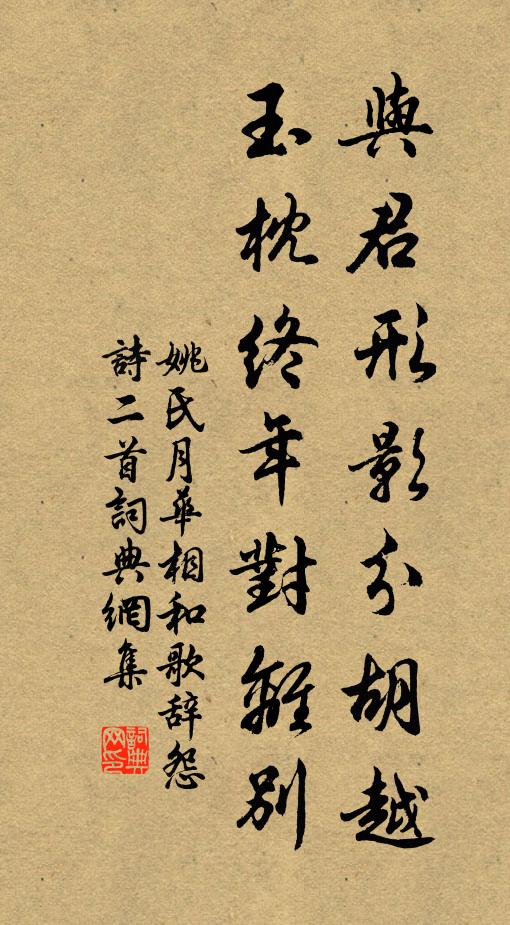 與君形影分胡越
玉枕終年對離別
姚氏月華相和歌辞怨
詩二首詞典網集
詞典網印